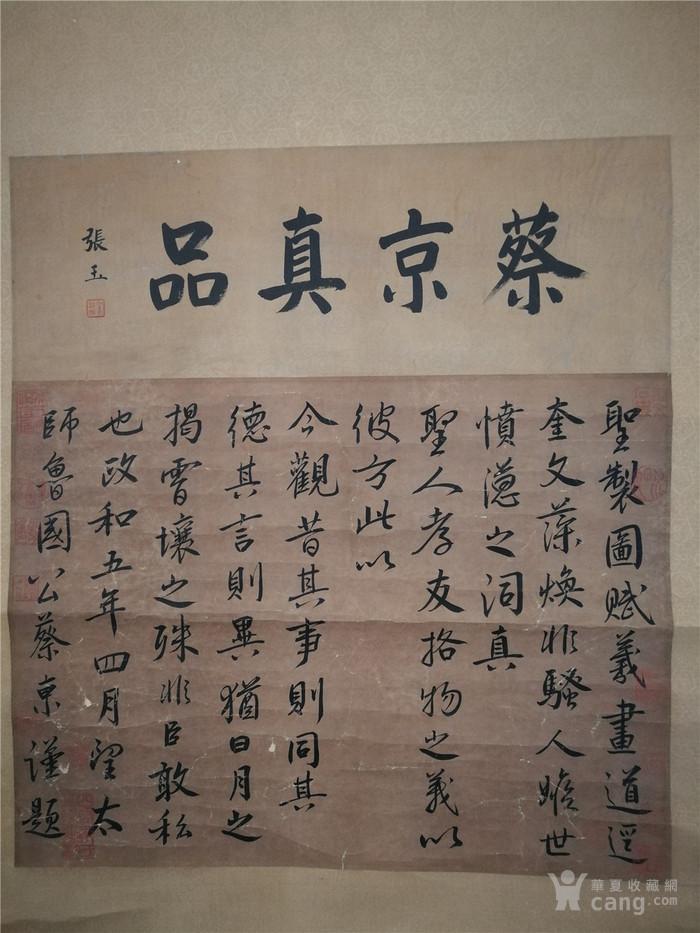 蔡京真品
張玉
聖製圖賦羲畫道逕
奎文藻煥非騷人嫉世
憤懣之詞真
聖人孝友格物之義以
彼方此以
今觀昔其事則同其
德其言則異猶日月之
揭霄壤之殊非臣敢私
也政和五年四月望太
師魯國公蔡京謹題
華夏收藏網
cang.com